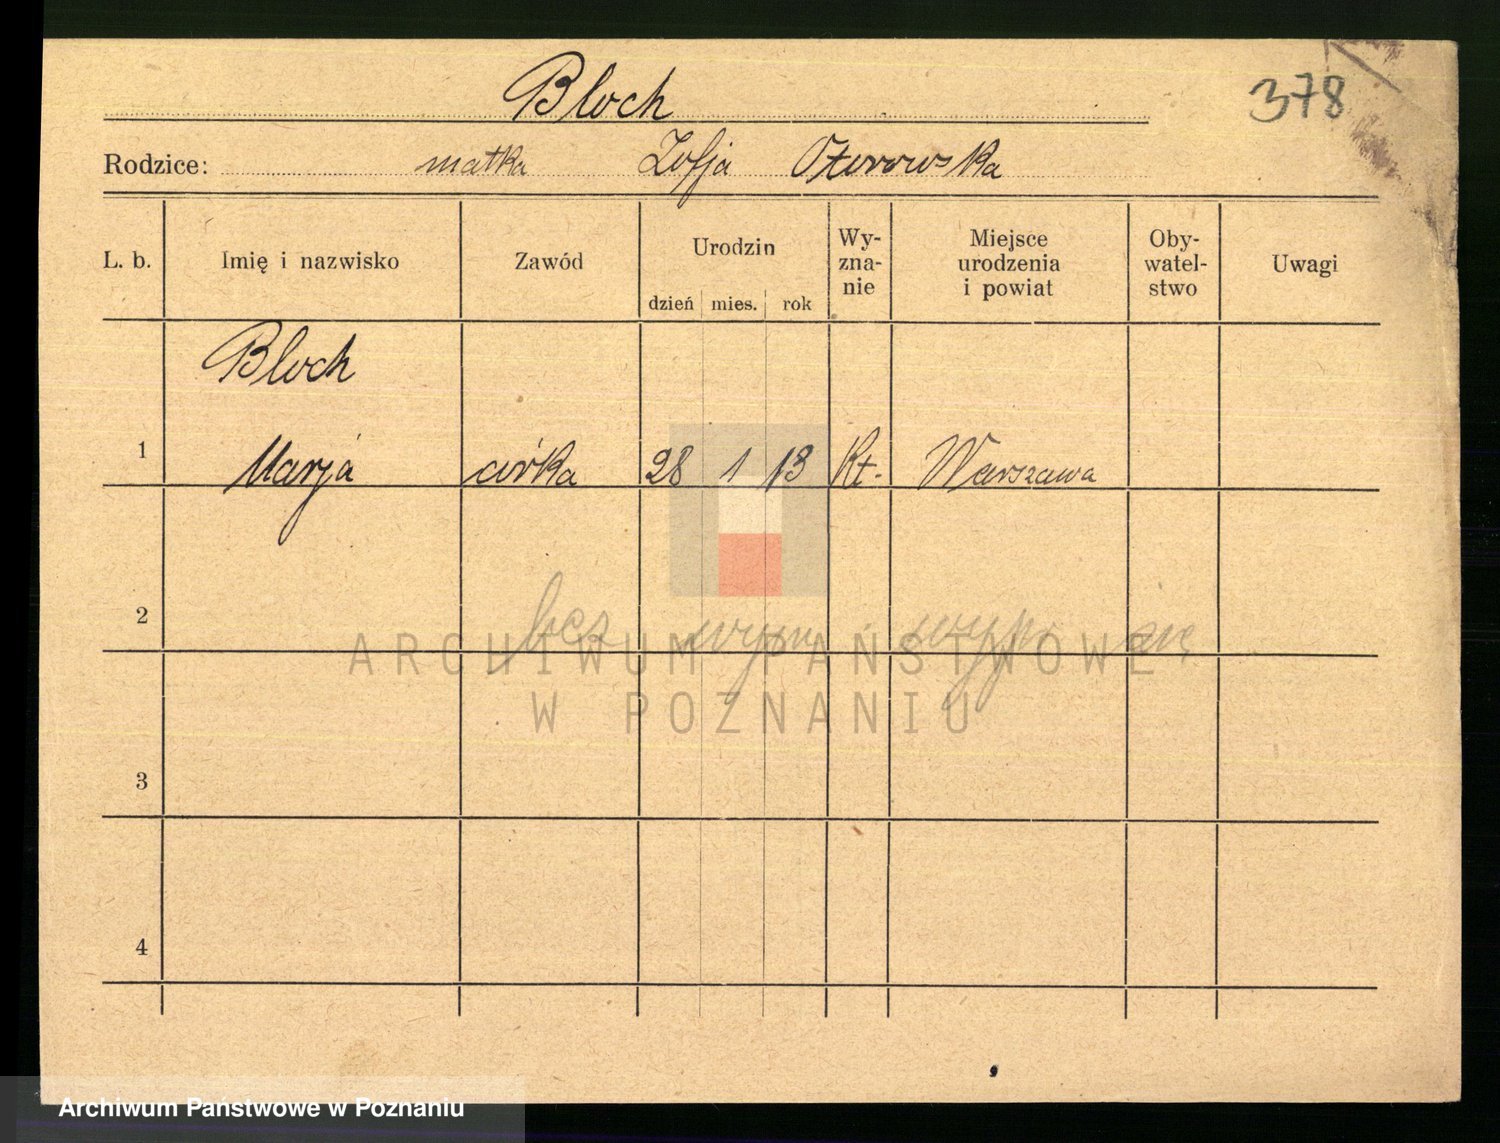 Bloch
378
Rodzice: matka Zofja
L. b.
Imię i nazwisko
Zawód
Urodzin
dzień mies. rok
Wy-
zna-
nie
Miejsce
urodzenia
i powiat
Oby-
watel-
stwo
Uwagi
Bloch
1 Marja córka 28 1 13 Kt. Warszawa
2 bez
ARCHIWUM PAŃSTWOWE
W POZNANIU
3
4
Archiwum Państwowe w Poznaniu